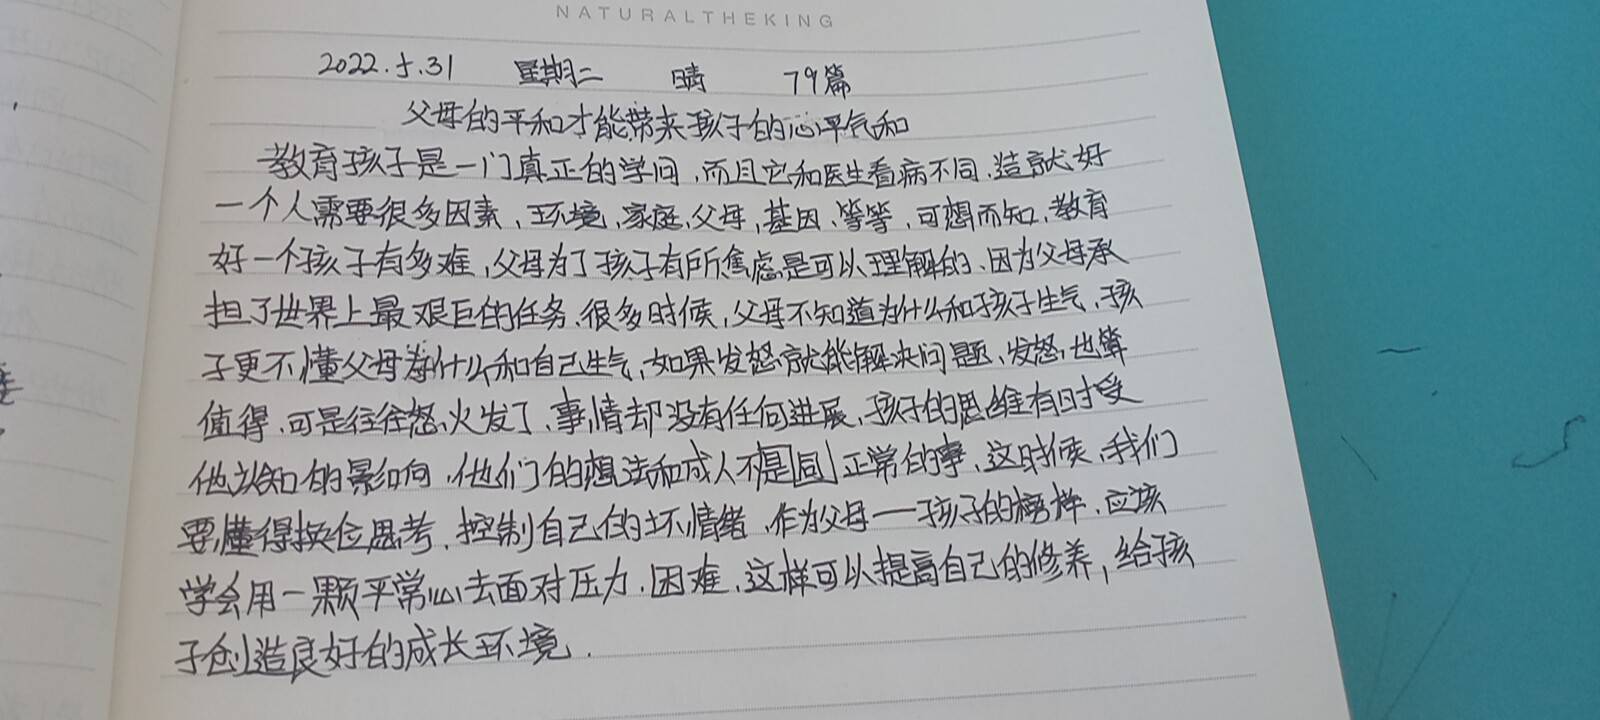 NATURALTHEKING
2022.5.31 星期二 晴 79篇
父母的平和才能带来孩子的心平气和
教育孩子是一门真正的学问,而且它和医生看病不同、造就好
一个人需要很多因素、环境、家庭、父母,基因、等等、可想而知、教育
好一个孩子有多难,父母为了孩子有所焦虑是可以理解的、因为父母承
担了世界上最艰巨的任务、很多时候,父母不知道为什么和孩子生气、孩
子更不懂父母为什么和自己生气,如果发怒就能解决问题、发怒也算
值得、可是往往怒火发了、事情却没有任何进展、孩子的思维有时受
他认知的影响、他们的想法和成人不同是正常的事、这时候、我们
要懂得换位思考、控制自己的坏情绪、作为父母——孩子的榜样、应该
学会用一颗平常心去面对压力、困难、这样可以提高自己的修养,给孩
子创造良好的成长环境.